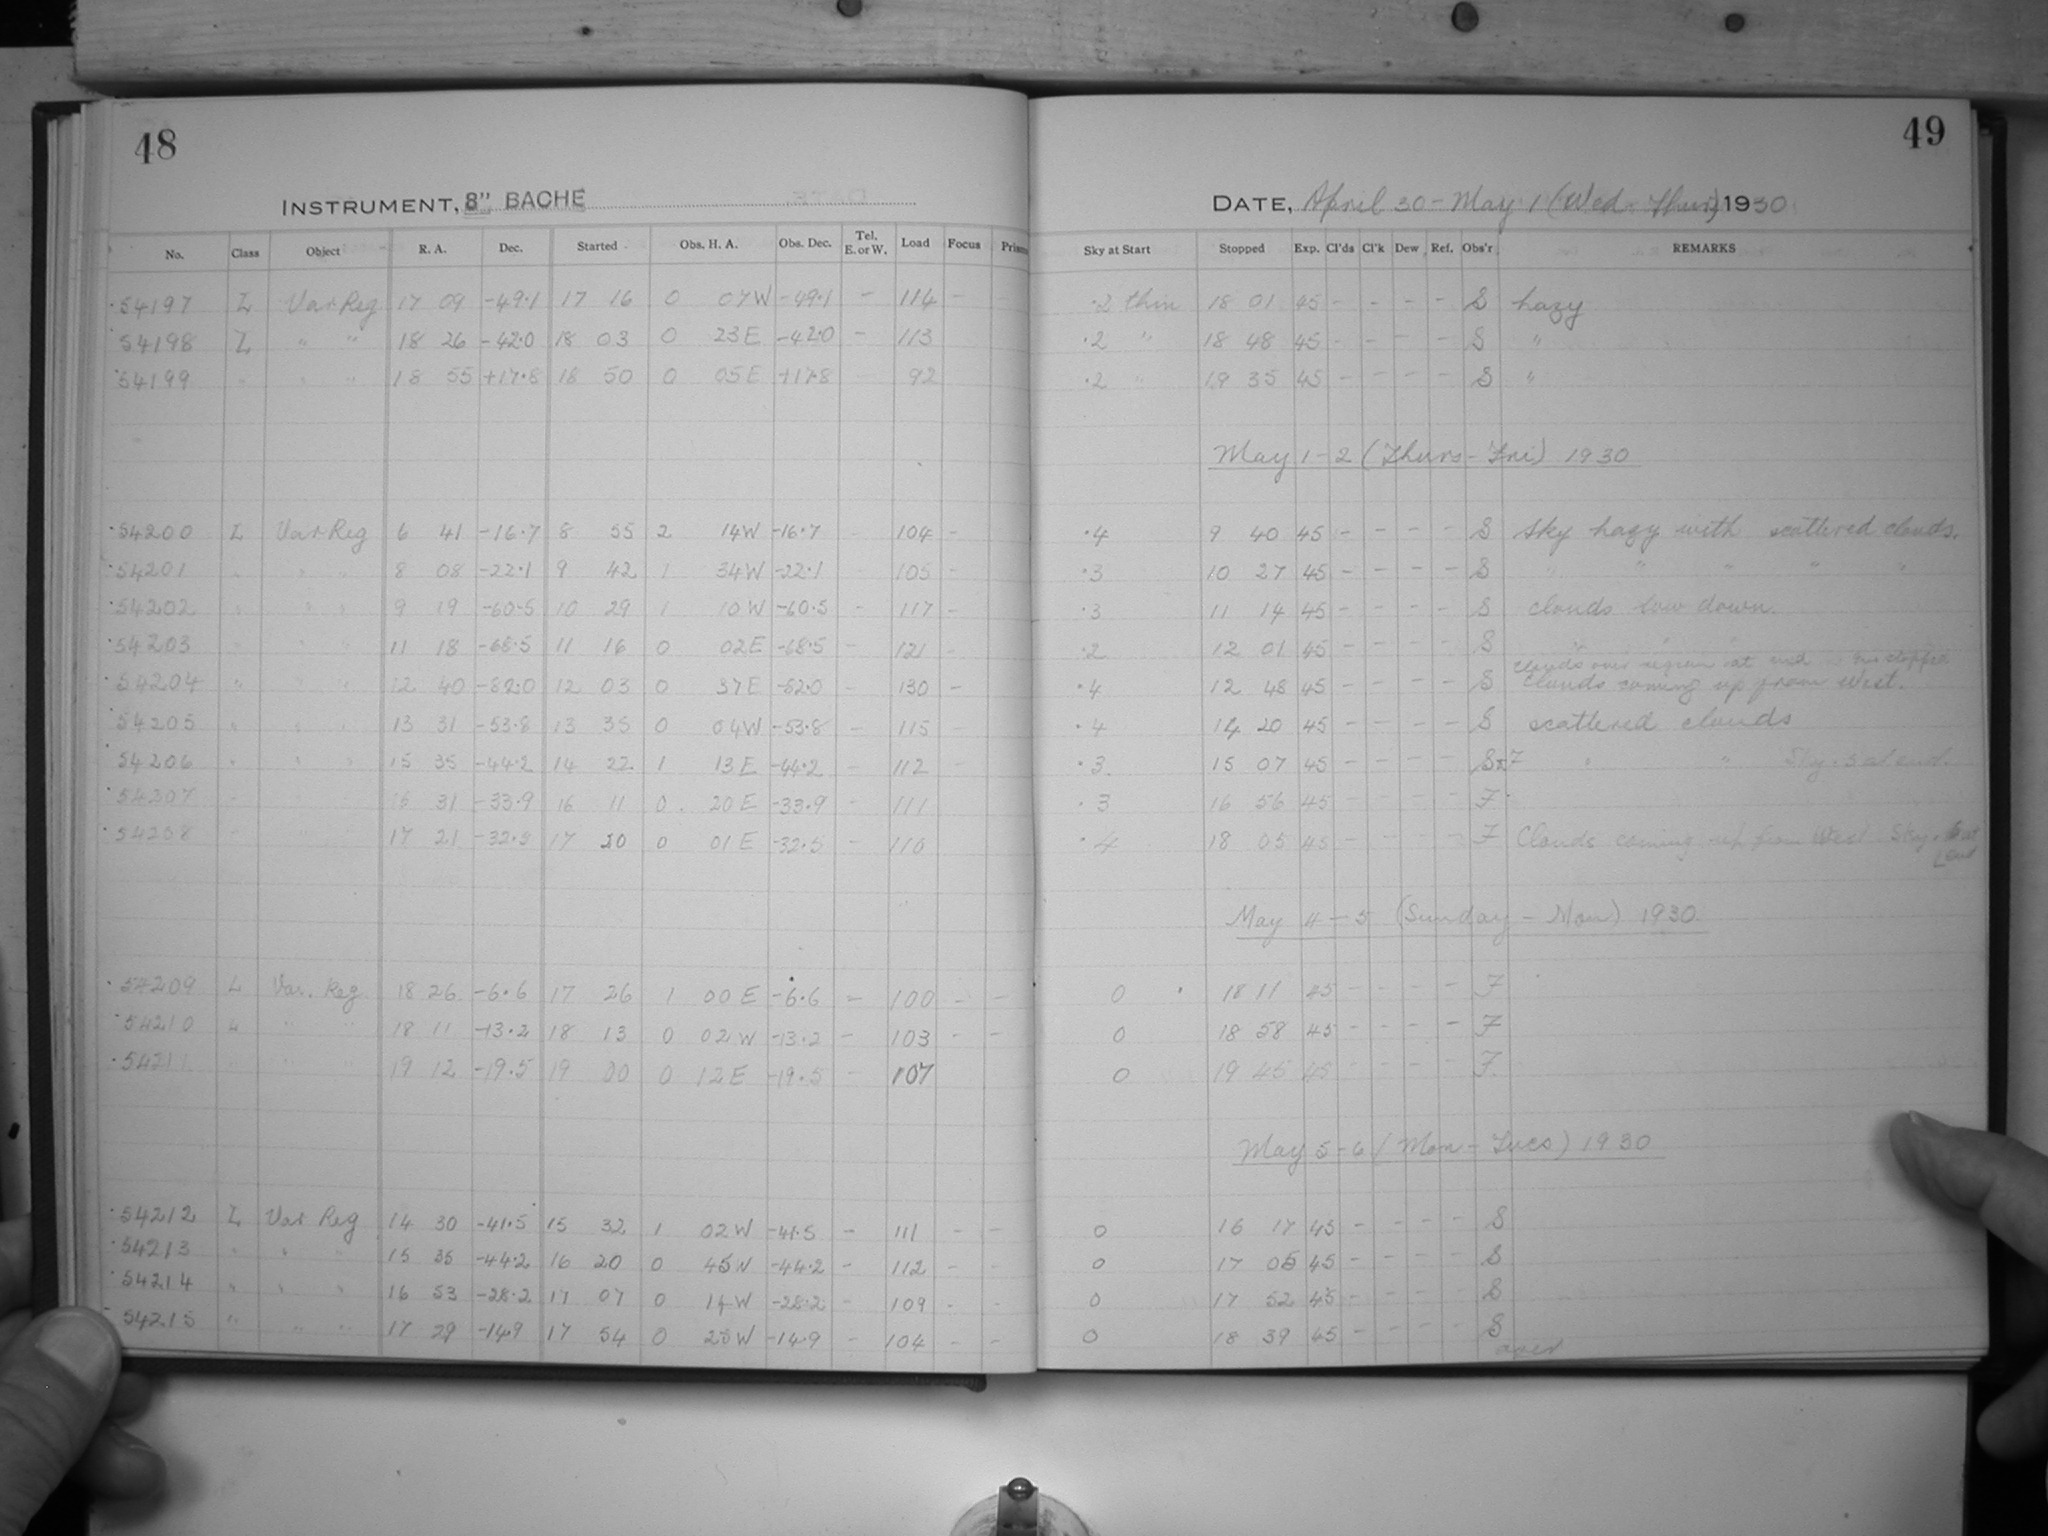 48
INSTRUMENT, 8" BACHE
No. Class Object R. A. Dec. Started Obs. H. A. Obs. Dec. Tel. E. or W. Load Focus
54197 L Var Reg 17 09 -49.1 17 16 0 07 W -49.1 - 114 -
54198 L " " 18 26 -42.0 18 03 0 23 E -42.0 - 113
54199 " " " 18 55 +17.8 18 50 0 05 E +17.8 92
54200 L Var Reg 6 41 -16.7 8 55 2 14 W -16.7 - 104 -
54201 " " " 8 08 -22.1 9 42 1 34 W -22.1 105 -
54202 " " " 9 19 -60.5 10 29 1 10 W -60.5 - 117 -
54203 " " " 11 18 -68.5 11 16 0 02 E -68.5 - 121 -
54204 " " " 12 40 -82.0 12 03 0 37 E -82.0 - 130 -
54205 " " " 13 31 -53.8 13 35 0 04 W -53.8 - 115 -
54206 " " " 15 35 -44.2 14 22 1 13 E -44.2 - 112 -
54207 " 16 31 -33.9 16 11 0 20 E -33.9 - 111
17 21 -32.5 17 20 0 01 E -32.5 - 110
54209 L Var. Reg 18 26 -6.6 17 26 1 00 E -6.6 - 100 - -
54210 L " " 18 11 -13.2 18 13 0 02 W -13.2 - 103 - -
54211 19 12 -19.5 19 00 0 12 E -19.5 - 107
54212 L Var Reg 14 30 -41.5 15 32 1 02 W -41.5 - 111 - -
54213 " " " 15 35 -44.2 16 20 0 45 W -44.2 - 112 - -
54214 " " " 16 53 -28.2 17 07 0 14 W -28.2 - 109 - -
54215 " " " 17 29 -14.9 17 54 0 25 W -14.9 - 104 - -
49
DATE, April 30 - May 1 (Wed - Thurs) 1930
Sky at Start Stopped Exp. Cl'ds Cl'k Dew Ref. Obs'r. REMARKS
.2 thin 18 01 45 - - - - S hazy
.2 " 18 48 45 - - - - S "
.2 " 19 35 45 - - - - S "
May 1-2 (Thurs - Fri) 1930
.4 9 40 45 - - - - S Sky hazy with scattered clouds.
.3 10 27 45 - - - - S " " " " "
.3 11 14 45 - - - - S clouds low down.
.2 12 01 45 - - - - S " " "
clouds over region at end
.4 12 48 45 - - - - S clouds coming up from west.
.4 14 20 45 - - - - S scattered clouds
.3 15 07 45 - - - - S F " " Sky .5 at end.
.3 16 56 45 - - - - F
.4 18 05 45 - - - - F Clouds coming up from West Sky at end
May 4-5 (Sunday - Mon) 1930
0 18 11 45 - - - - F
0 18 58 45 - - - - F
0 19 45 45 - - - - F
May 5-6 (Mon - Tues) 1930
0 16 17 45 - - - - S
0 17 05 45 - - - - S
0 17 52 45 - - - - S
0 18 39 45 - - - - S
over